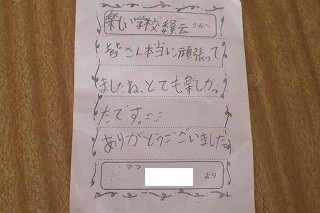 楽しい学校縁云さんへ
皆さん本当に頑張って
ましたね、とても楽しかっ
たです。
ありがとうございました。
ママ
より